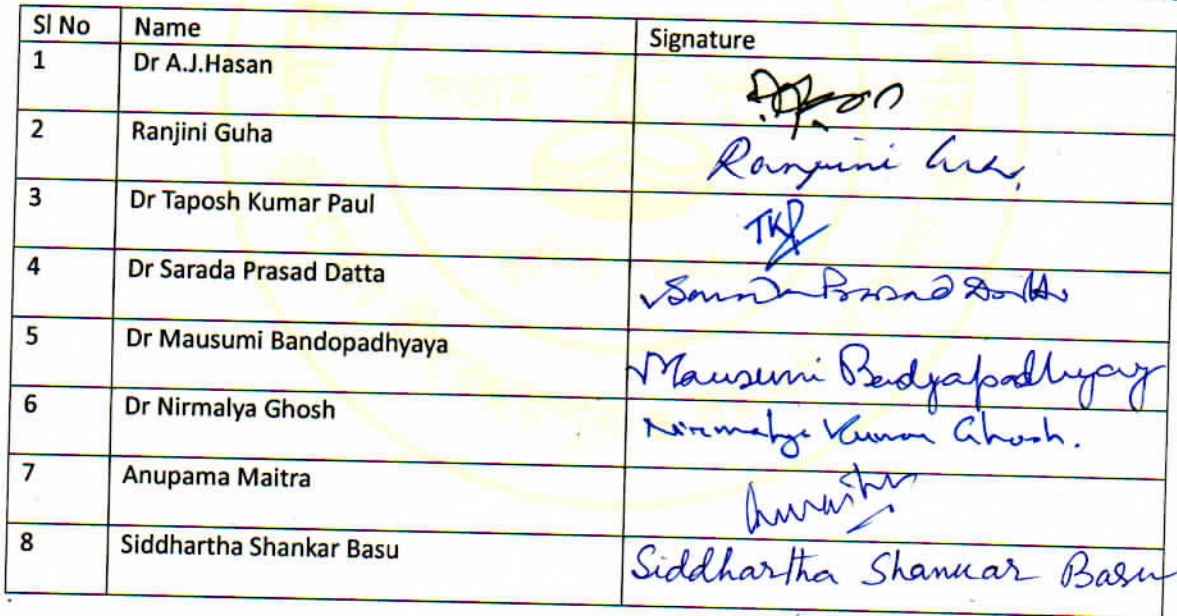 Sl No Name Signature
1 Dr A.J.Hasan
2 Ranjini Guha Ranjini Guha
3 Dr Taposh Kumar Paul TKP
4 Dr Sarada Prasad Datta Sarada Prasad Datta
5 Dr Mausumi Bandopadhyaya Mausumi Badyapadhyay
6 Dr Nirmalya Ghosh Nirmalya Kumar Ghosh.
7 Anupama Maitra
8 Siddhartha Shankar Basu Siddhartha Shankar Basu